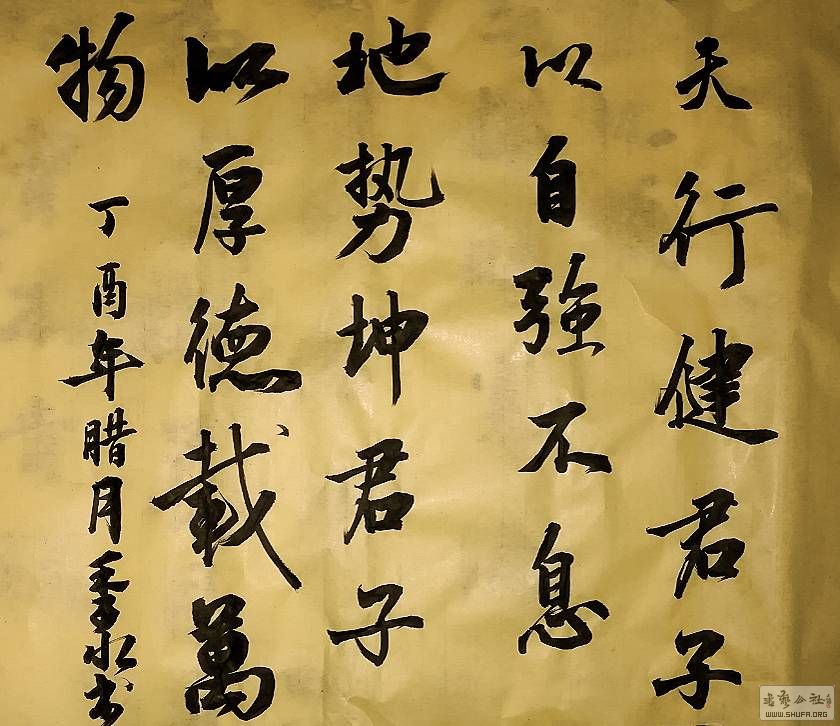 天行健君子
以自強不息
地势坤君子
以厚德載萬
物
丁酉年腊月季水书
WWW.SHUFA.ORG